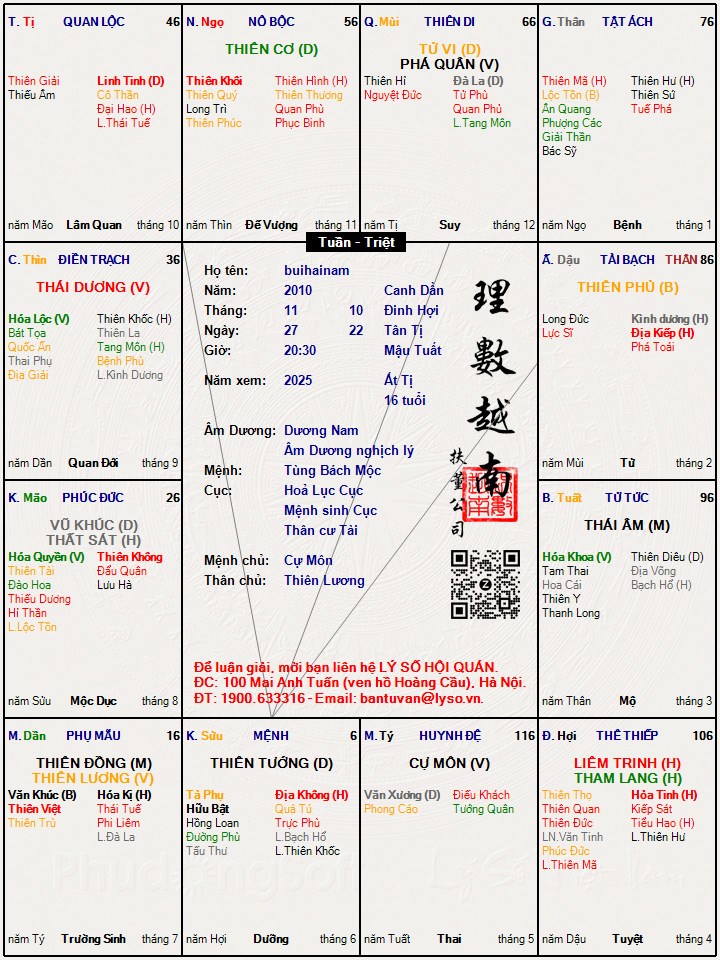 T. Tị QUAN LỘC 46
Thiên Giải Linh Tinh (D)
Thiếu Âm Cô Thần
Đại Hao (H)
L.Thái Tuế
năm Mão Lâm Quan tháng 10
N. Ngọ NÔ BỘC 56
THIÊN CƠ (D)
Thiên Khôi Thiên Hình (H)
Thiên Quý Thiên Thương
Long Trì Quan Phù
Thiên Phúc Phục Binh
năm Thìn Đế Vượng tháng 11
Q. Mùi THIÊN DI 66
TỬ VI (D)
PHÁ QUÂN (V)
Thiên Hỉ Đà La (D)
Nguyệt Đức Tử Phù
Quan Phủ
L.Tang Môn
năm Tị Suy tháng 12
G. Thân TẬT ÁCH 76
Thiên Mã (H) Thiên Hư (H)
Lộc Tồn (B) Thiên Sứ
Ân Quang Tuế Phá
Phượng Các
Giải Thần
Bác Sỹ
năm Ngọ Bệnh tháng 1
Tuần - Triệt
C. Thìn ĐIỀN TRẠCH 36
THÁI DƯƠNG (V)
Hóa Lộc (V) Thiên Khốc (H)
Bát Tọa Thiên La
Quốc Ấn Tang Môn (H)
Thai Phụ Bệnh Phù
Địa Giải L.Kình Dương
năm Dần Quan Đới tháng 9
Họ tên: buihainam
Năm: 2010 Canh Dần
Tháng: 11 10 Đinh Hợi
Ngày: 27 22 Tân Tị
Giờ: 20:30 Mậu Tuất
Năm xem: 2025 Ất Tị
16 tuổi
Âm Dương: Dương Nam
Âm Dương nghịch lý
Mệnh: Tùng Bách Mộc
Cục: Hoả Lục Cục
Mệnh sinh Cục
Thân cư Tài
Mệnh chủ: Cự Môn
Thân chủ: Thiên Lương
理數越南
扶董公司
Để luận giải, mời bạn liên hệ LÝ SỐ HỘI QUÁN.
ĐC: 100 Mai Anh Tuấn (ven hồ Hoàng Cầu), Hà Nội.
ĐT: 1900.633316 - Email: bantuvan@lyso.vn.
Ấ. Dậu TÀI BẠCH THÂN 86
THIÊN PHỦ (B)
Long Đức Kình dương (H)
Lực Sĩ Địa Kiếp (H)
Phá Toái
năm Mùi Tử tháng 2
K. Mão PHÚC ĐỨC 26
VŨ KHÚC (D)
THẤT SÁT (H)
Hóa Quyền (V) Thiên Không
Thiên Tài Đẩu Quân
Đào Hoa Lưu Hà
Thiếu Dương
Hỉ Thần
L.Lộc Tồn
năm Sửu Mộc Dục tháng 8
B. Tuất TỬ TỨC 96
THÁI ÂM (M)
Hóa Khoa (V) Thiên Diêu (D)
Tam Thai Địa Võng
Hoa Cái Bạch Hổ (H)
Thiên Y
Thanh Long
năm Thân Mộ tháng 3
M. Dần PHỤ MẪU 16
THIÊN ĐỒNG (M)
THIÊN LƯƠNG (V)
Văn Khúc (B) Hóa Kị (H)
Thiên Việt Thái Tuế
Thiên Trù Phi Liêm
L.Đà La
năm Tý Trường Sinh tháng 7
K. Sửu MỆNH 6
THIÊN TƯỚNG (D)
Tả Phụ Địa Không (H)
Hữu Bật Quả Tú
Hồng Loan Trực Phù
Đường Phù L.Bạch Hổ
Tấu Thư L.Thiên Khốc
năm Hợi Dưỡng tháng 6
M. Tý HUYNH ĐỆ 116
CỰ MÔN (V)
Văn Xương (D) Điếu Khách
Phong Cáo Tướng Quân
năm Tuất Thai tháng 5
Đ. Hợi THÊ THIẾP 106
LIÊM TRINH (H)
THAM LANG (H)
Thiên Thọ Hỏa Tinh (H)
Thiên Quan Kiếp Sát
Thiên Đức Tiểu Hao (H)
LN.Văn Tinh L.Thiên Hư
Phúc Đức
L.Thiên Mã
năm Dậu Tuyệt tháng 4